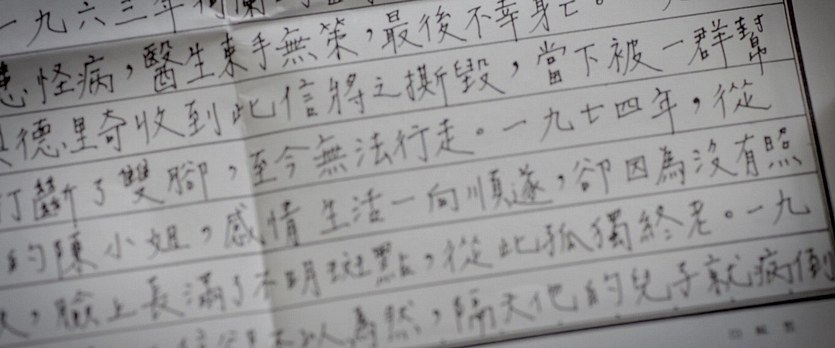 一九六三年
怪病，醫生束手無策，最後不幸身亡。
德里奇收到此信將之撕毀，當下被一群幫
打斷了雙腳，至今無法行走。一九七四年，從
的陳小姐，感情生活一向順遂，卻因為沒有照
，臉上長滿了不明斑點，從此孤獨終老。一九
以為然，隔天他的兒子就病倒